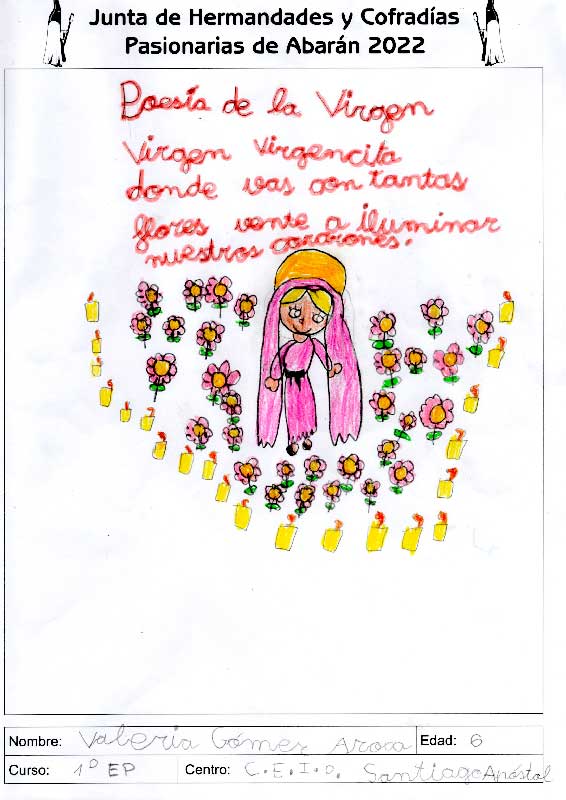 Junta de Hermandades y Cofradías
Pasionarias de Abarán 2022
Poesía de la Virgen
Virgen Virgencita
donde vas con tantas
flores vente a iluminar
nuestros corazones.
Nombre: Valeria Gómez Edad: 6
Curso: 1º EP Centro: C.E.I.P. Santiago Apóstol